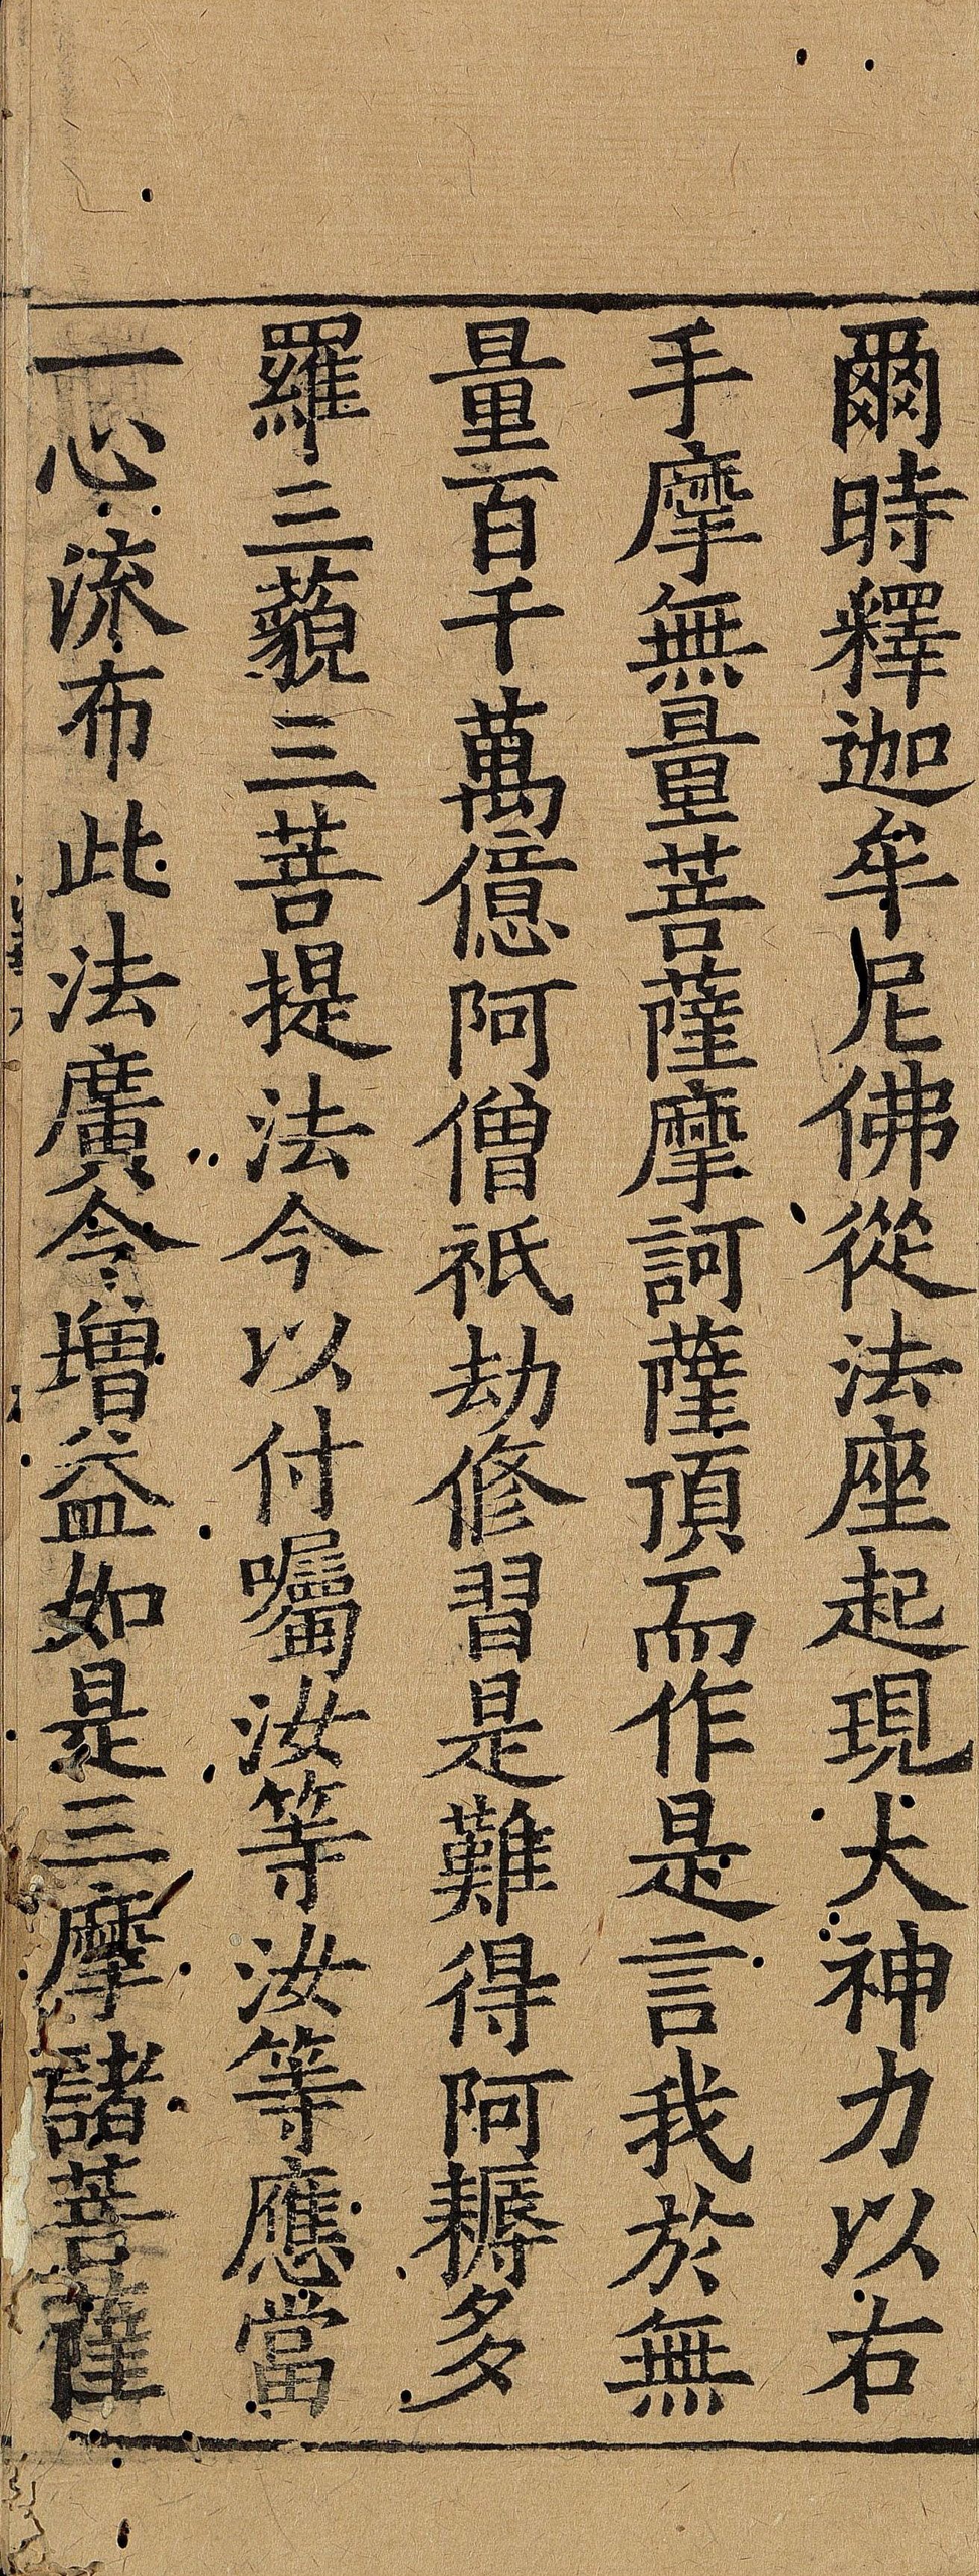 爾時釋迦牟尼佛從法座起現大神力以右
手摩無量菩薩摩訶薩頂而作是言我於無
量百千萬億阿僧祇劫修習是難得阿耨多
羅三藐三菩提法今以付囑汝等汝等應當
一心流布此法廣令增益如是三摩諸菩薩